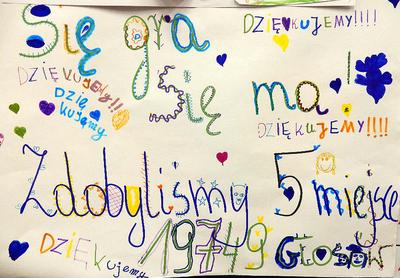 Się gra DZIĘKUJEMY!!!!
DZIĘKUJEMY!!
DZIĘ
kujemy
Się ma!
DZIĘKUJEMY!!!!
Zdobyliśmy 5 miejsce
DZIĘkujemy 19749 Głosów